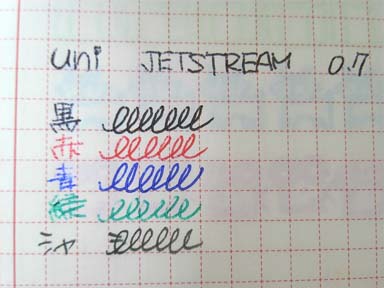 uni JETSTREAM 0.7
黒
赤
青
緑
シャ